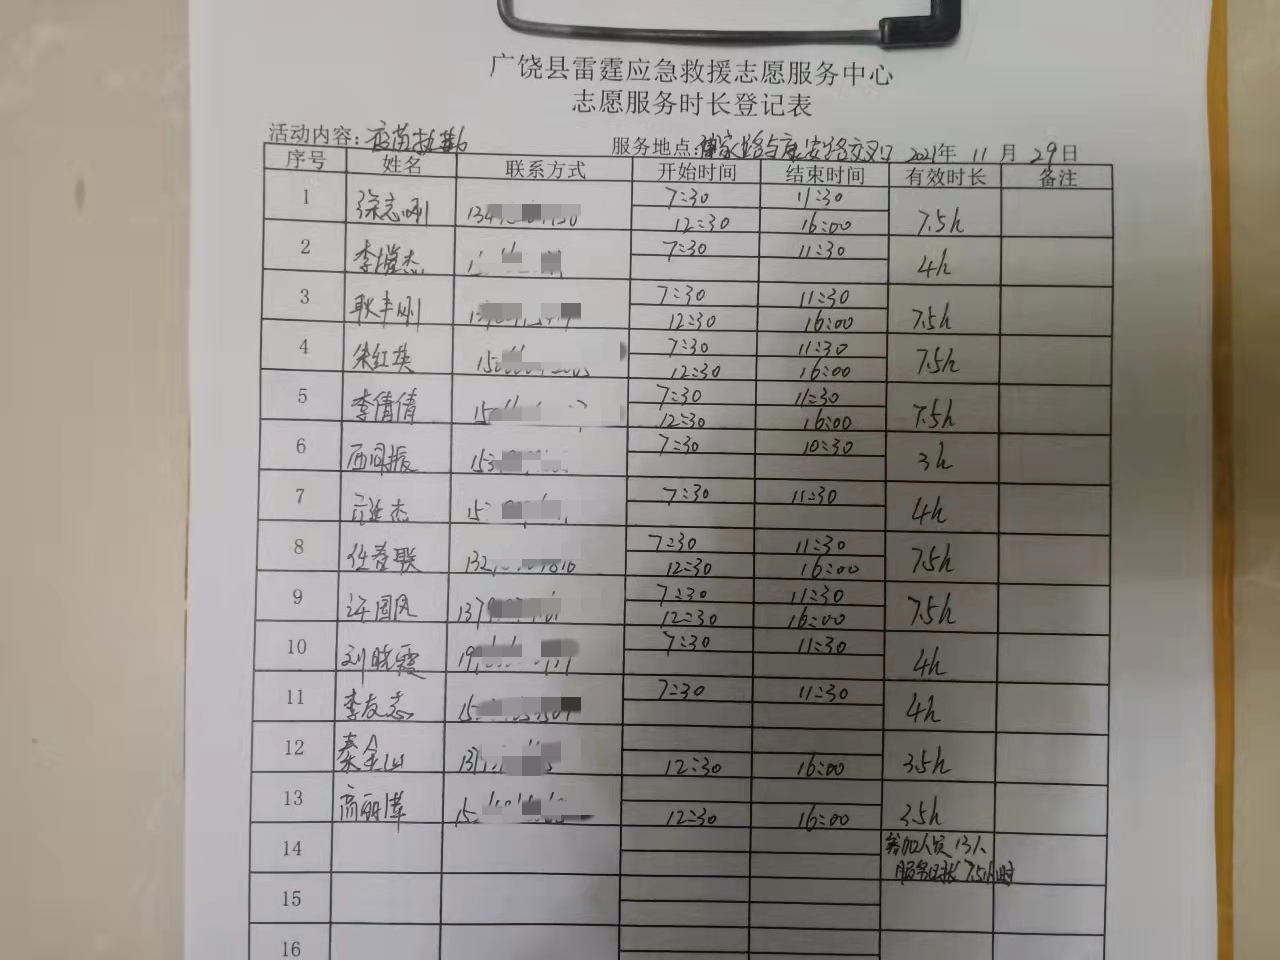 广饶县雷霆应急救援志愿服务中心
志愿服务时长登记表
活动内容:疫苗执勤 服务地点: 2021年 11月 29日
序号 姓名 联系方式 开始时间 结束时间 有效时长 备注
1 徐志刚 7:30 11:30
12:30 16:00 7.5h
2 李 杰 7:30 11:30
4h
3 耿丰刚 7:30 11:30
12:30 16:00 7.5h
4 朱红英 7:30 11:30
12:30 16:00 7.5h
5 李倩倩 7:30 11:30
12:30 16:00 7.5h
6 西同振 7:30 10:30
3h
7 杰 7:30 11:30
4h
8 任春联 7:30 11:30
12:30 16:00 7.5h
9 许国凤 7:30 11:30
12:30 16:00 7.5h
10 刘晓霞 7:30 11:30
4h
11 李友志 7:30 11:30
4h
12 秦金山 12:30 16:00 3.5h
13 高丽 12:30 16:00 3.5h
14 参加人员 13人
服务时长 7.5小时
15
16